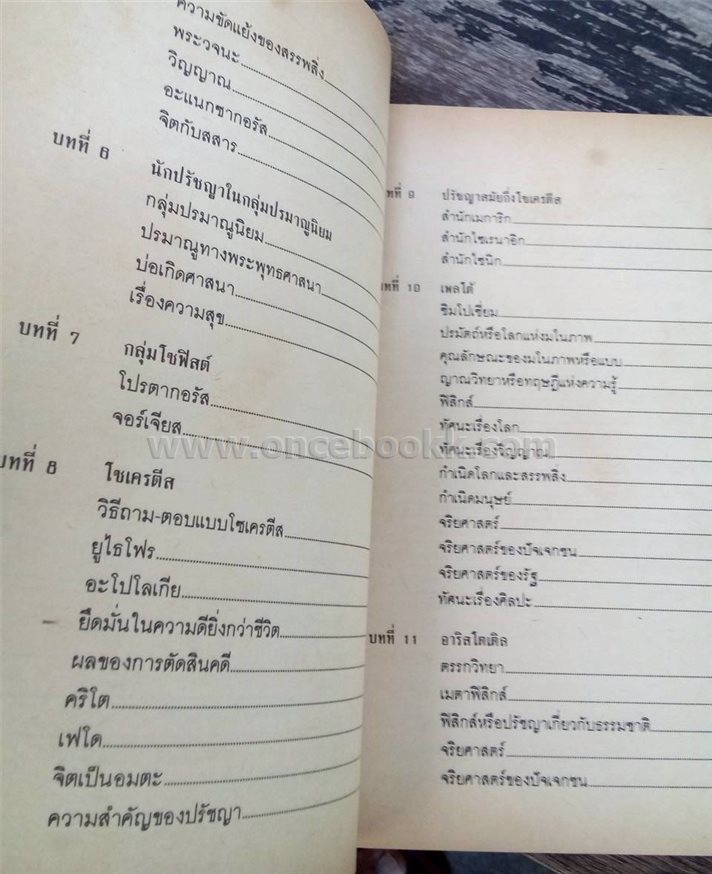 ความขัดแย้งของสรรพสิ่ง
พระวจนะ
วิญญาณ
อะแนกซากอรัส
จิตกับสสาร
บทที่ 6 นักปรัชญาในกลุ่มปรมาณูนิยม
กลุ่มปรมาณูนิยม
ปรมาณูทางพระพุทธศาสนา
บ่อเกิดศาสนา
เรื่องความสุข
บทที่ 7 กลุ่มโซฟิสต์
โปรตากอรัส
จอร์เจียส
บทที่ 8 โซเครตีส
วิธีถาม-ตอบแบบโซเครตีส
ยูไธโฟร
อะโปโลเกีย
ยึดมั่นในความดียิ่งกว่าชีวิต
ผลของการตัดสินคดี
คริโต
เฟโด
จิตเป็นอมตะ
ความสำคัญของปรัชญา
บทที่ 9 ปรัชญาสมัยกึ่งโซเครตีส
สำนักเมการิก
สำนักไซเรนาอิก
สำนักไซนิก
บทที่ 10 เพลโต้
ซิมโปเซี่ยม
ปรมัตถ์หรือโลกแห่งมโนภาพ
คุณลักษณะของมโนภาพหรือแบบ
ญาณวิทยาหรือทฤษฎีแห่งความรู้
ฟิสิกส์
ทัศนะเรื่องโลก
ทัศนะเรื่องวิญญาณ
กำเนิดโลกและสรรพสิ่ง
กำเนิดมนุษย์
จริยศาสตร์
จริยศาสตร์ของปัจเจกชน
จริยศาสตร์ของรัฐ
ทัศนะเรื่องศิลปะ
บทที่ 11 อาริสโตเติล
ตรรกวิทยา
เมตาฟิสิกส์
ฟิสิกส์หรือปรัชญาเกี่ยวกับธรรมชาติ
จริยศาสตร์
จริยศาสตร์ของปัจเจกชน
www.oncebookk.com